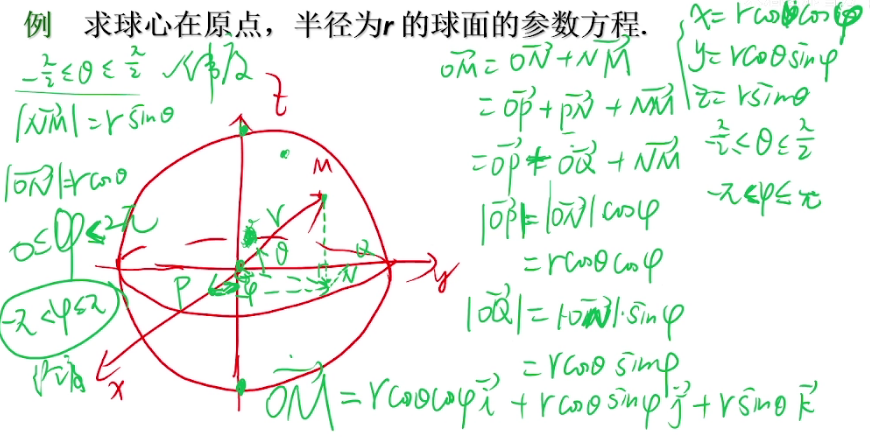 例 求球心在原点，半径为r 的球面的参数方程.
-π/2≤θ≤π/2 纬度
|NM|=r sinθ
|ON|=r cosθ
0≤φ≤2π
-π<φ≤π
z
M
r
θ
Q
P
φ
N
y
x
OM=ON+NM
=OP+PN+NM
=OP+OQ+NM
|OP|=|ON|cosφ
=rcosθcosφ
|OQ|=|ON|·sinφ
=rcosθ sinφ
OM=rcosθcosφ i+rcosθ sinφ j+r sinθ k
x=rcosθcosφ
y=rcosθ sinφ
z=rsinθ
-π/2≤θ≤π/2
-π<φ≤π